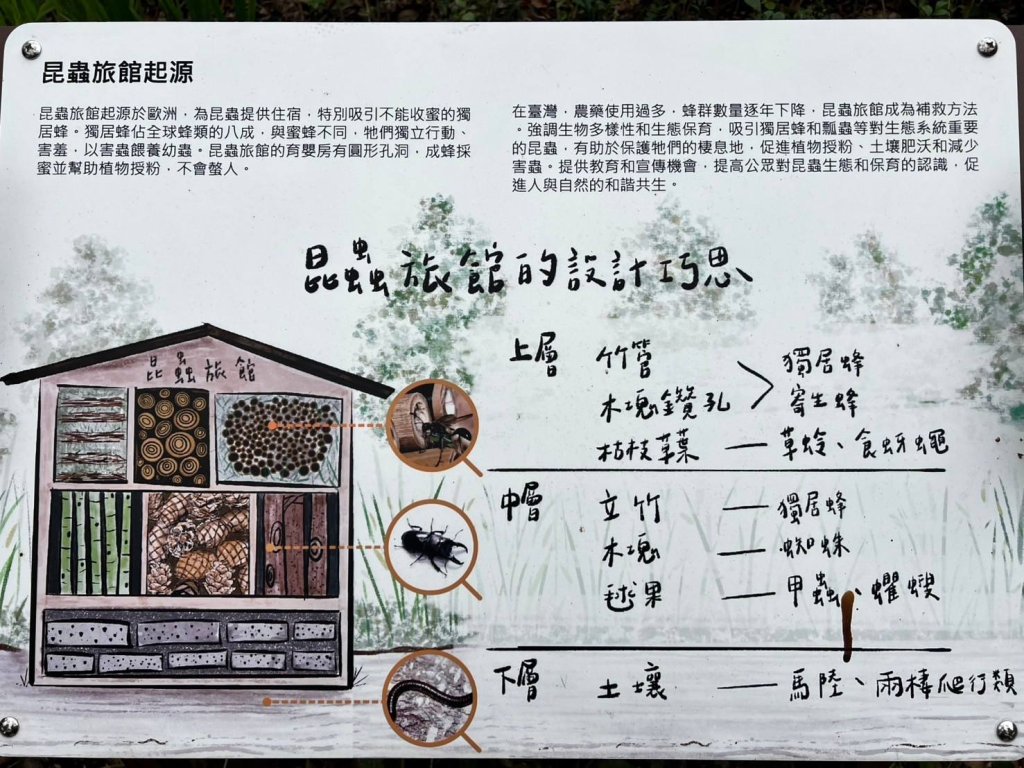 昆蟲旅館起源
昆蟲旅館起源於歐洲，為昆蟲提供住宿，特別吸引不能收蜜的獨
居蜂。獨居蜂佔全球蜂類的八成，與蜜蜂不同，牠們獨立行動、
害羞，以害蟲餵養幼蟲。昆蟲旅館的育嬰房有圓形孔洞，成蜂採
蜜並幫助植物授粉，不會螫人。
在臺灣，農藥使用過多，蜂群數量逐年下降，昆蟲旅館成為補救方法
。強調生物多樣性和生態保育，吸引獨居蜂和瓢蟲等對生態系統重要
的昆蟲，有助於保護牠們的棲息地，促進植物授粉、土壤肥沃和減少
害蟲。提供教育和宣傳機會，提高公眾對昆蟲生態和保育的認識，促
進人與自然的和諧共生。
昆蟲旅館的設計巧思
昆蟲旅館
上層 竹管 > 獨居蜂
木塊鑽孔 寄生蜂
枯枝葉 — 草蛉、食蚜蠅
中層 立竹 — 獨居蜂
木塊 — 蜘蛛
毬果 — 甲蟲、蠷螋
下層 土壤 — 馬陸、兩棲爬行類